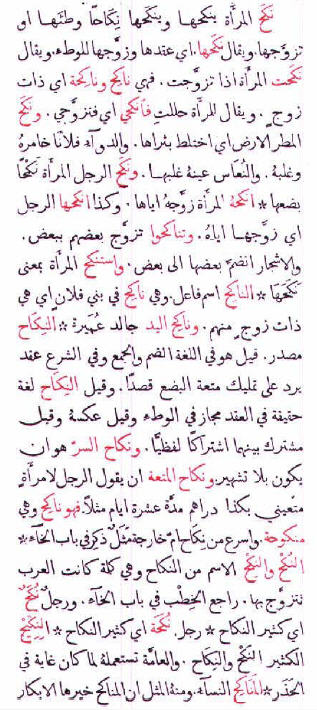 نَكَحَ المرأة ينكحها وينكَحها نِكَاحًا وطئها او
تزوجها. ويقال نكحها. اي عقدها وزوجها للوطء. ويقال
نكحت المرأة اذا تزوجت. فهي ناكح وناكحة اي ذات
زوج. ويقال لمرأة حللتِ فانكحي اي فتزوجي. ونكح
المطر الارض اي اختلط بثراها. والدوآء فلانًا خامرهُ
وغلبهُ. والنُعاس عينهُ غلبها. ونكح الرجل المرأة نَكحًا
بضعها * انكحهُ المرأة زوَّجهُ اياها. وكذا انكحها الرجل
اي زوَّجها اياهُ. وتناكحوا تزوج بعضهم ببعض.
والاشجار انضمَّ بعضها الى بعض. واستنكح المرأة بمعنى
نَكَحَهَا * الناكح اسم فاعل. وهي ناكح في بني فلان اي هي
ذات زوجٍ منهم. وناكح اليد جالد عُمَيرة * النِكاح
مصدر. قيل هو في اللغة الضم والجمع وفي الشرع عقد
يرد على تمليك متعة البضع قصدًا. وقيل النِكاح لغة
حقيقة في العقد مجاز في الوطء وقيل عكسهُ وقيل
مشترك بينهما اشتراكًا لفظيًّا. ونكاح السرّ هو ان
يكون بلا تشهير. ونكاح المتعة ان يقول الرجل لامرأةٍ
متعيني بكذا دراهم مدَّة عشرة ايام مثلاً. فهو ناكح وهي
منكوحة. واسرع من نِكَاح امّ خارجة مَثَلٌ ذكر في باب الخآء *
النُكْح والنِكْح الاسم من النكاح وهي كلة كانت العرب
تتزوج بها. راجع الخِطْب في باب الخآء. ورجلٌ نُكَحٌ
اي كثير النكاح * رجل نُكَحَة اي كثير النكاح * النِكِّيح
الكثير النَكْح والنِكَاح. والعامَّة تستعملهُ لما كان غاية في
الحَذَر * المَنَاكح النسآء. ومنهُ المثل ان المناكح خيرها الابكار